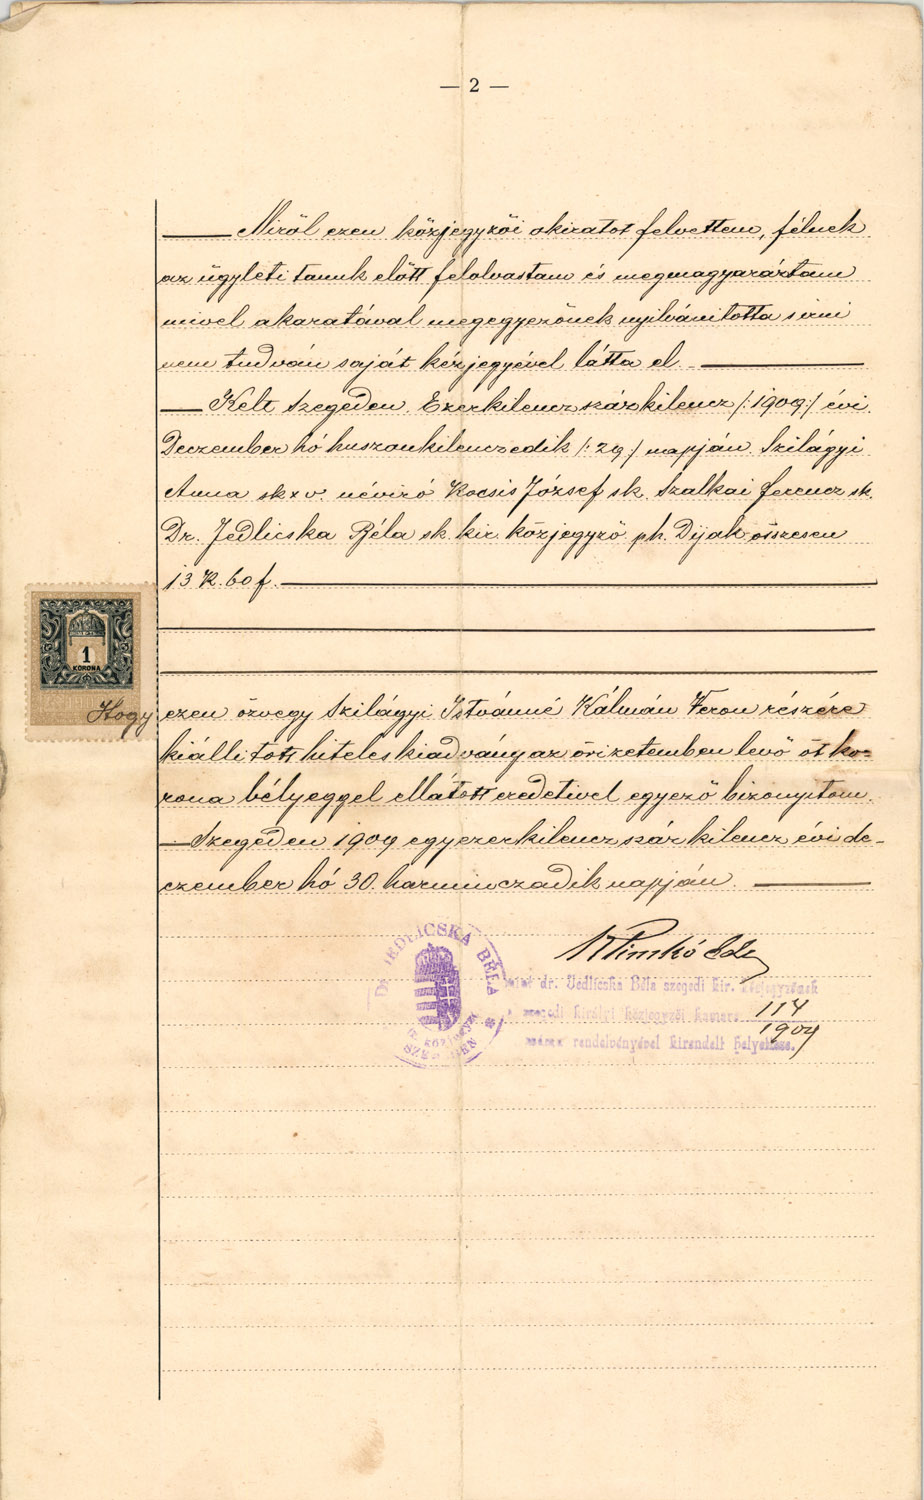 — 2 —
Miről ezen közjegyzői okiratot felvettem, félnek
az ügyleti tanuk előtt felolvastam és megmagyaráztam
mivel akaratával megegyezőnek nyilvánította s irni
nem tudván saját kézjegyével látta el.
Kelt Szegeden. Ezerkilenczszázkilencz /:1909:/ évi
Deczember hó huszonkilenczedik /:29:/ napján. Szilágyi
Anna sk x v. néviró Kocsis József sk. Szalkai Ferencz sk.
Dr. Jedlicska Béla sk. kir. közjegyző ph. Dijak összesen
13 K. 60 f.
1
KORONA
Hogy ezen özvegy Szilágyi Istvánné Kálmán Veron részére
kiállitott hiteles kiadvány az őrizetemben levő öt ko-
rona bélyeggel ellátott eredetivel egyező bizonyitom.
Szegeden 1909 egyezerkilenczszázkilencz évi de-
czember hó 30. harminczadik napján.
Dr. JEDLICSKA BÉLA
SZEGEDEN
mint dr. Jedlicska Béla szegedi kir. közjegyzőnek
a szegedi királyi közjegyzői kamara 114
1909
számu rendelvényével kirendelt helyettese.